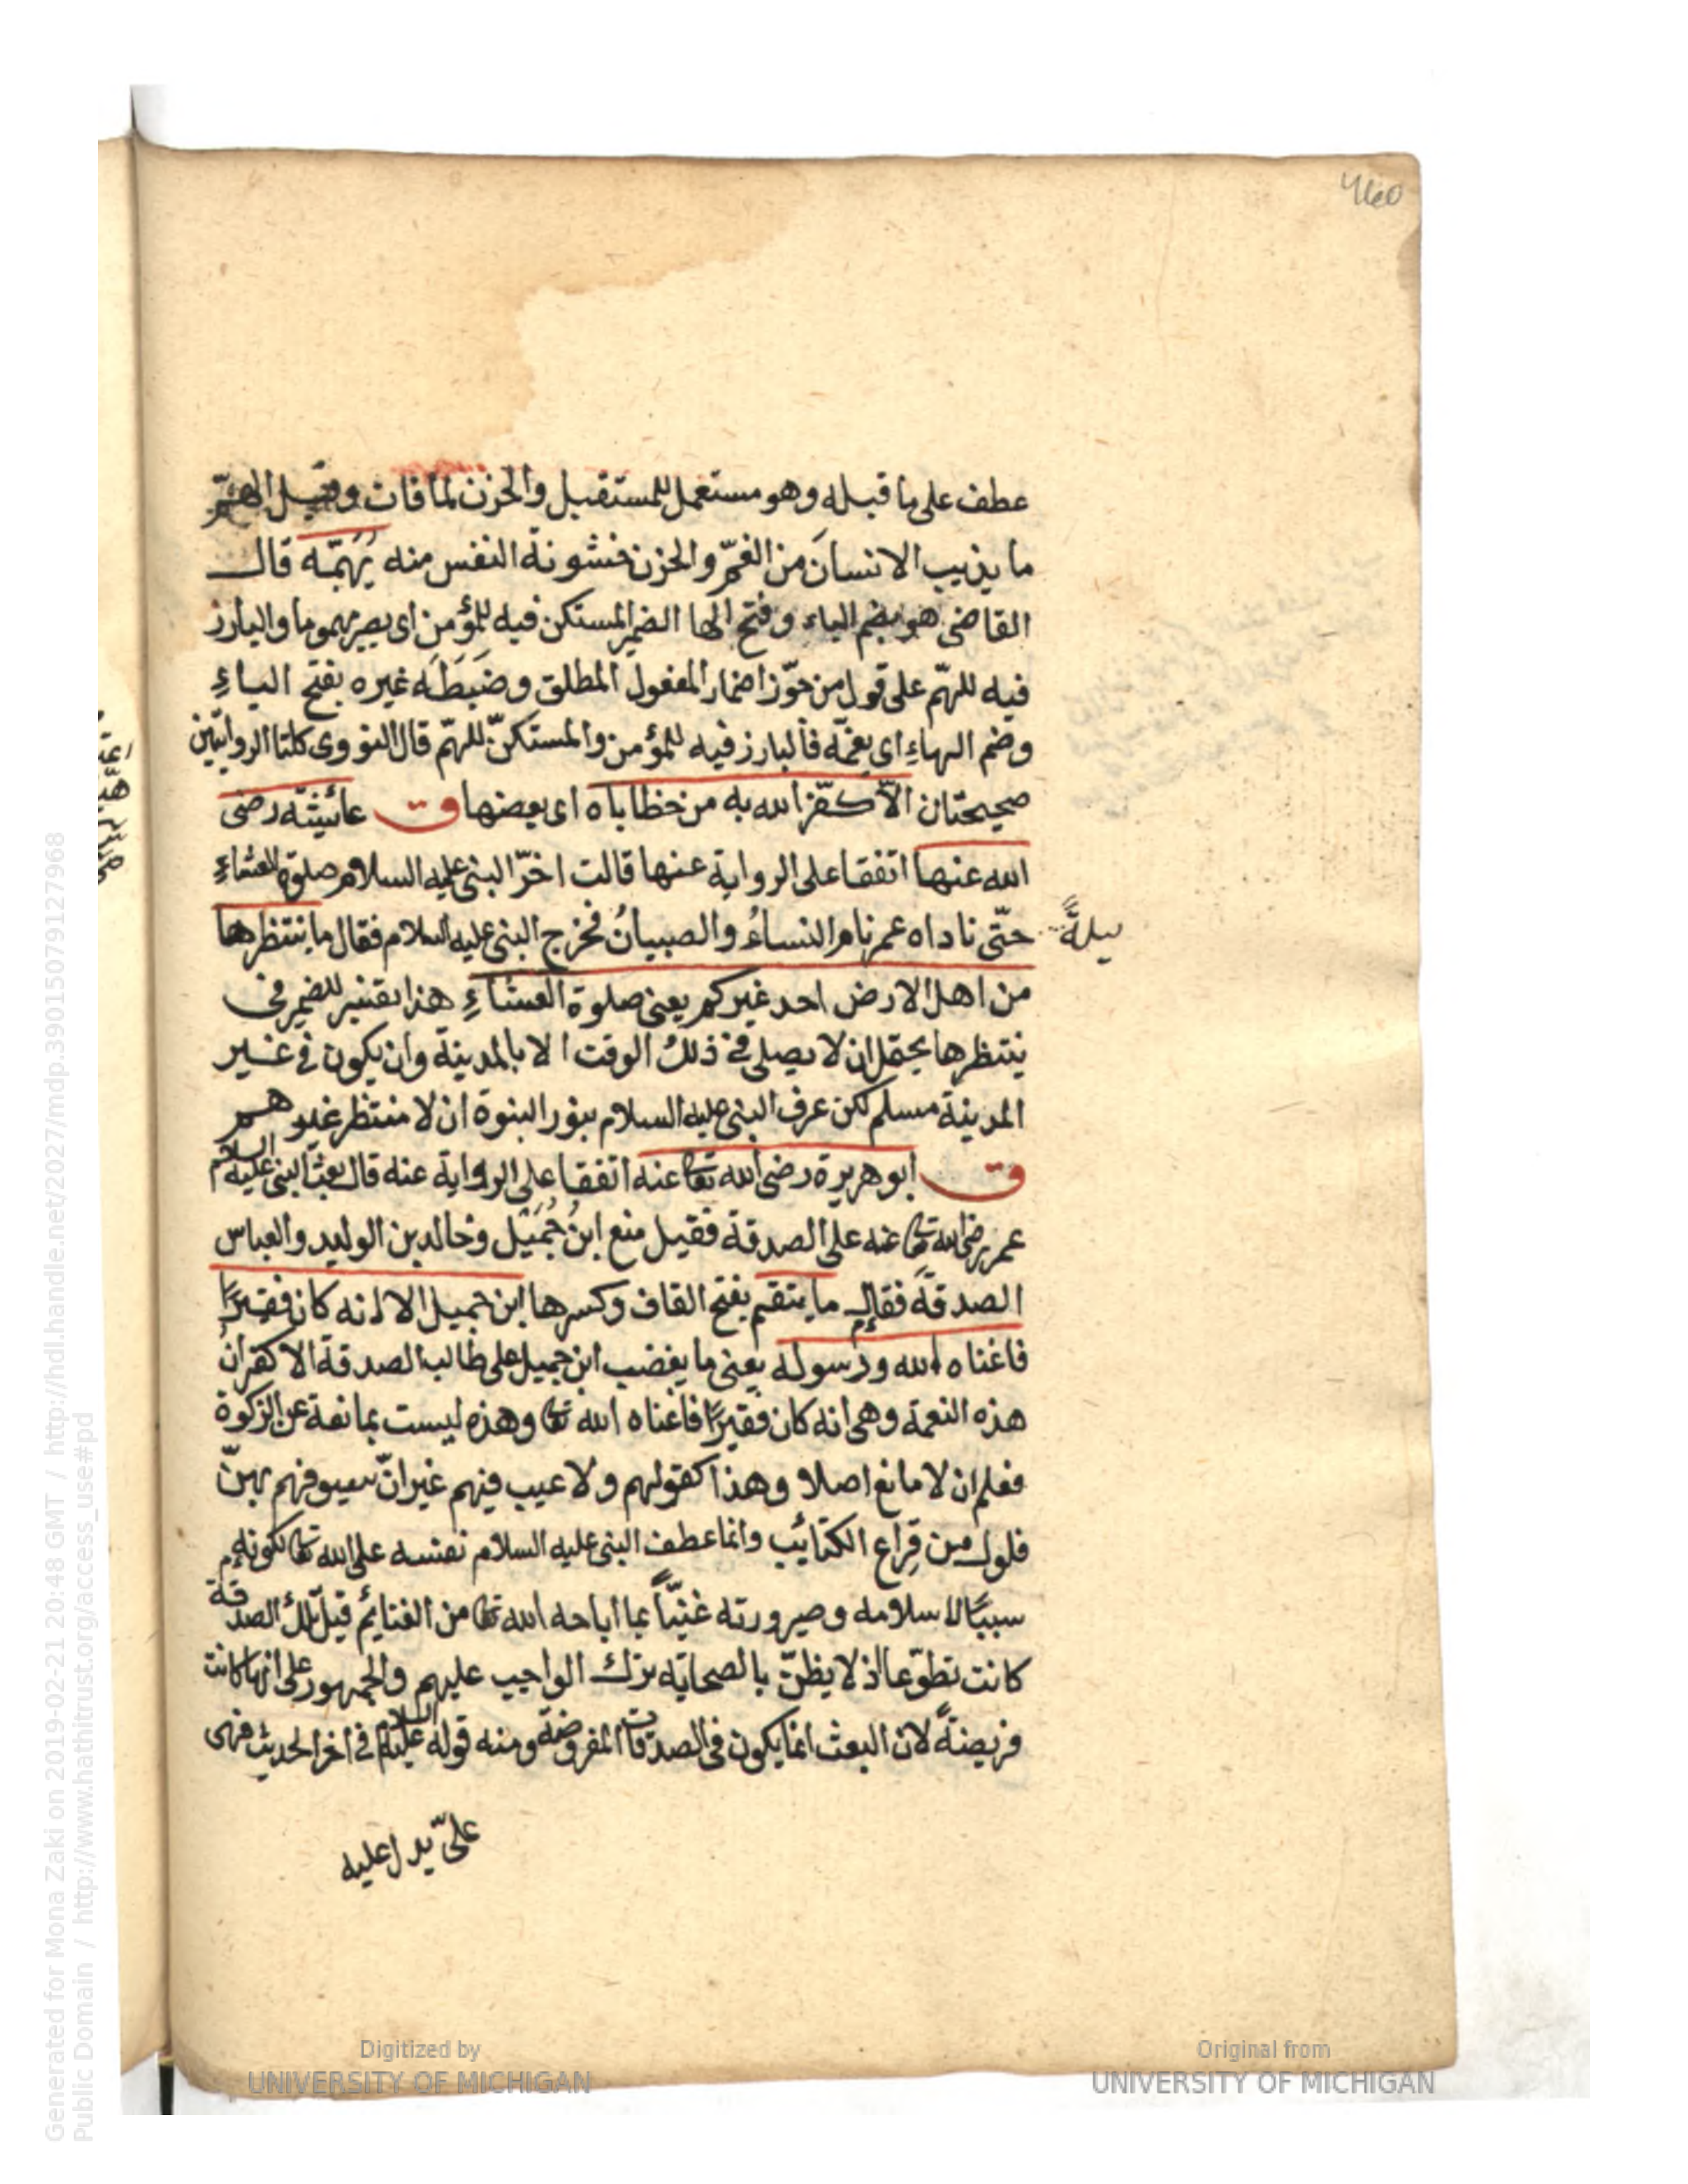 عطف على ما قبله وهو مستعمل للمستقبل والحزن لما فات وقيل الهمّ
ما يذيب الانسانَ من الغمّ والحزن خشونة النفس منه يُهَمّه قال
القاضى هو بضم الياء وفتح الها الضمير المستكن فيه للمؤمن اى يصير مهموما والبارز
فيه للهمّ على قول من جوّز اضمار المفعول المطلق وضَبَطَه غيره بفتح الياءِ
وضم الهاءِ اى يغمّه فالبارز فيه للمؤمن والمستكنّ للهمّ قال النووى كلتا الروايتين
صحيحتان الّا كفّر الله به من خطاياه اى بعضها ق عائشة رضى
الله عنها اتفقا على الرواية عنها قالت اخّر النبى عليه السلام صلوة العشاءِ
ليلةً
حتّى ناداه عمر نام النساءُ والصبيانُ فخرج النبى عليه السلام فقال ما ينتظرها
من اهل الارض احد غيركم يعنى صلوة العشاءِ هذا تفسير للضمير فى
ينتظرها يحتمل ان لا يصلى فى ذلك الوقت الا بالمدينة وان يكون فى غير
المدينة مسلم لكن عرف النبى عليه السلام بنور النبوة ان لا منتظر غيرهم
ق ابو هريرة رضى الله تعا عنه اتفقا على الرواية عنه قال بعث النبى عليه السلام
عمر رضى الله تعا عنه على الصدقة فقيل منع ابنُ جُمَيَل وخالد بن الوليد والعباس
الصدقةَ فقال ما ينقم بفتح القاف وكسرها ابن جميل الا انه كان فقيرًا
فاغناه الله ورسوله يعنى ما يغضب ابن جميل على طالب الصدقة الا كفران
هذه النعمة وهى انه كان فقيرًا فاغناه الله تعا وهذه ليست بمانعة عن الزكوة
فعلم ان لا مانع اصلا وهذا كقولهم ولا عيب فيهم غير انّ سيوفهم بهنّ
فلول من قِراع الكتائب وانما عطف النبى عليه السلام نفسه على الله تعا لكونه
سببًا لاسلامه وصيرورته غنيّاً بما اباحه الله تعا من الغنائم قيل تلك الصدقة
كانت تطوّعا اذ لا يظنّ بالصحابه ترك الواجب عليهم والجمهور على انها كانت
فريضةً لان البعث انما يكون فى الصدقات المفروضة ومنه قوله عليه السلام فى اخر الحديث فهى
علىّ يدل عليه
Digitized by
UNIVERSITY OF MICHIGAN
Original from
UNIVERSITY OF MICHIGAN
Generated for Mona Zaki on 2019-02-21 20:48 GMT / http://hdl.handle.net/2027/mdp.39015079127968
Public Domain / http://www.hathitrust.org/access_use#pd